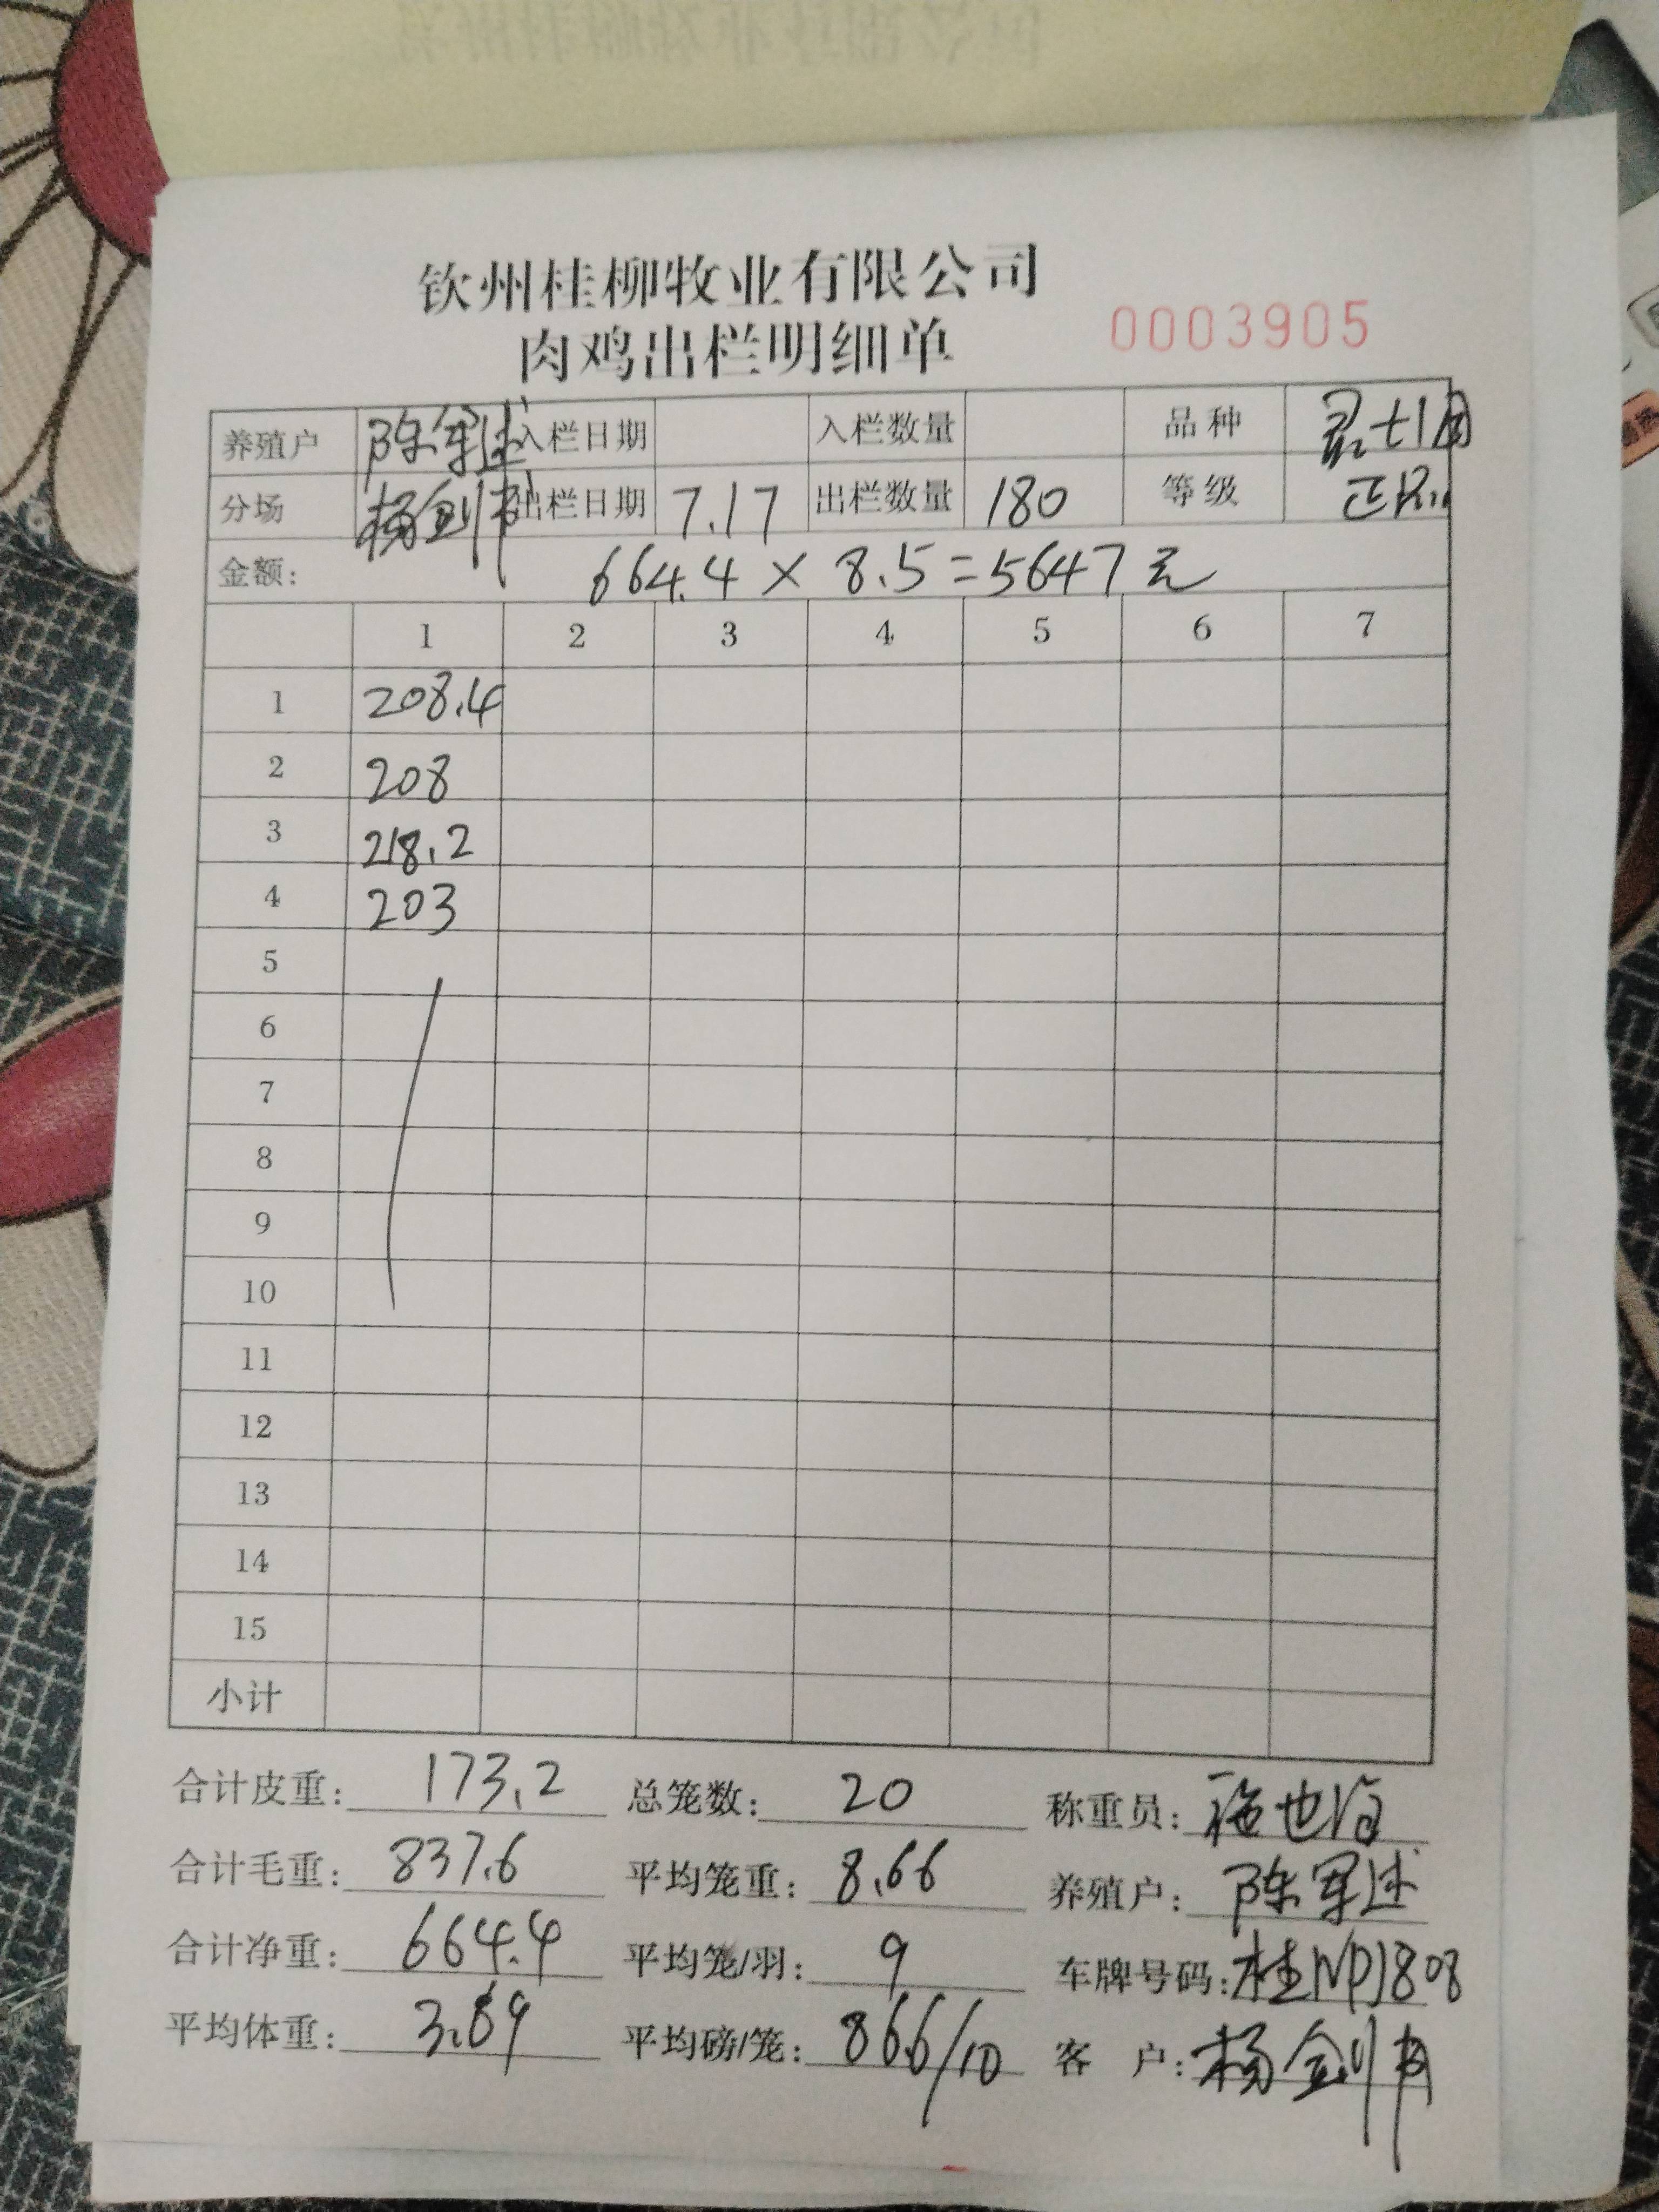 钦州桂柳牧业有限公司
肉鸡出栏明细单 0003905
养殖户 陈军述 入栏日期 入栏数量 品种 土
分场 杨剑 出栏日期 7.17 出栏数量 180 等级 正
金额: 664.4 × 8.5 = 5647元
1 2 3 4 5 6 7
1 208.4
2 208
3 218.2
4 203
5
6
7
8
9
10
11
12
13
14
15
小计
合计皮重: 173.2 总笼数: 20 称重员:
合计毛重: 837.6 平均笼重: 8.66 养殖户: 陈军述
合计净重: 664.4 平均笼/羽: 9 车牌号码: 桂NDJ808
平均体重: 3.69 平均磅/笼: 86.6/10 客 户: 杨剑